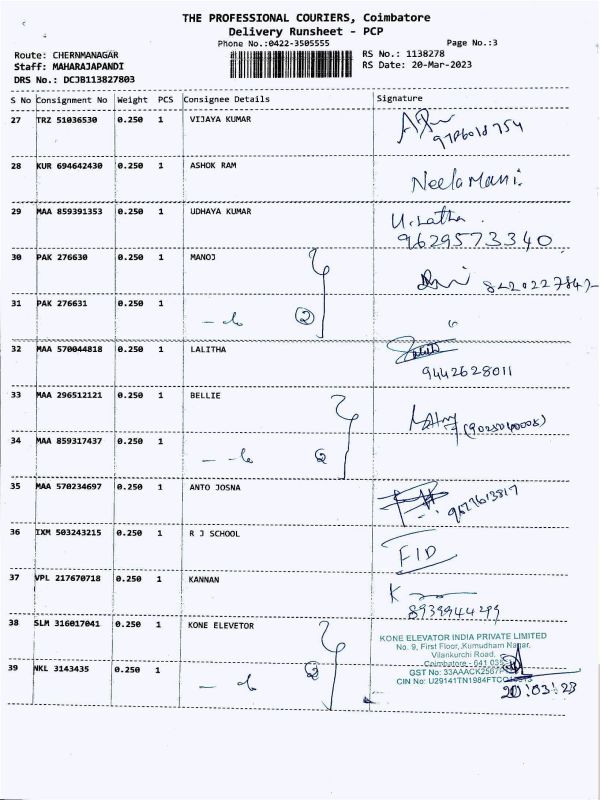 THE PROFESSIONAL COURIERS, Coimbatore
Delivery Runsheet - PCP
Phone No.:0422-3505555 Page No.:3
Route: CHERNMANAGAR RS No.: 1138278
Staff: MAHARAJAPANDI RS Date: 20-Mar-2023
DRS No.: DCJB113827803
S No Consignment No Weight PCS Consignee Details Signature
27 TRZ 51036530 0.250 1 VIJAYA KUMAR
28 KUR 694642430 0.250 1 ASHOK RAM
Neela Mani.
29 MAA 859391353 0.250 1 UDHAYA KUMAR U. Latha
9629573340
30 PAK 276630 0.250 1 MANOJ
31 PAK 276631 0.250 1
②
32 MAA 570044818 0.250 1 LALITHA
9442628011
33 MAA 296512121 0.250 1 BELLIE
34 MAA 859317437 0.250 1
②
35 MAA 570234697 0.250 1 ANTO JOSNA
36 IXM 503243215 0.250 1 R J SCHOOL
FID
37 VPL 217670718 0.250 1 KANNAN K
8939944299
38 SLM 316017041 0.250 1 KONE ELEVETOR
KONE ELEVATOR INDIA PRIVATE LIMITED
No. 9, First Floor, Kumudham Nagar,
Vilankurichi Road,
Coimbatore - 641 035
39 NKL 3143435 0.250 1 ②
GST No: 33AAACK2567P
CIN No: U29141TN1984FTC
20:03:23